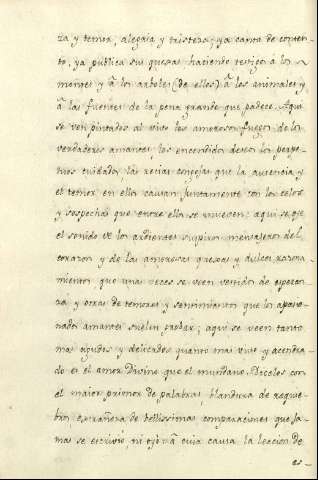 za y temor, alegria y tristeza; ya canta de conten-
to, ya publica sus quejas haciendo testigos à los
montes y à los arboles (de ellos) à los animales y
à las fuentes de la pena grande que padece. Aqui
se ven pintados al vivo los amorosos fuegos de los
verdaderos amantes, los encendidos deseos los perpe-
tuos cuidados, las recias congojas que la ausencia y
el temor en ellos causan juntamente con los celos
y sospechas que entre ellos se mueven: aqui se oye
el sonido de los ardientes suspiros, mensajeros del
corazon y de las amorosas quejas y dulces razona-
mientos que unas veces se veen vestidos de esperan-
za y otras de temores y sentimientos que los apasio-
nados amantes suelen probar; aqui se veen tanto
mas agudos y delicados quanto mas vivo y acendra-
do es el amor Divino que el mundano. Dicelos con
el maior primor de palabras, blandura de reque-
bros, estrañeza de bellissimas comparaciones que ja-
mas se escrivió, ni oyó: à cuia causa la leccion de
es-